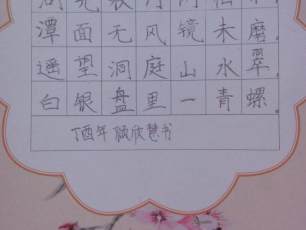 潭面无风镜未磨
遥望洞庭山水翠
白银盘里一青螺
丁酉年 欣慧书